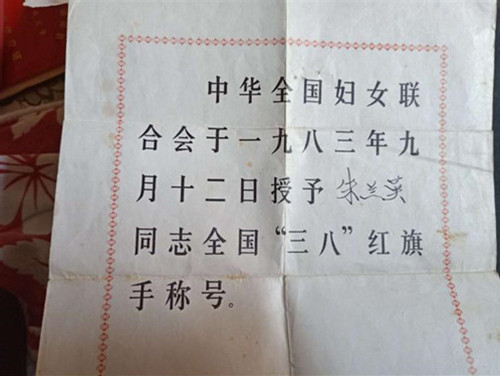 中华全国妇女联
合会于一九八三年九
月十二日授予朱兰英
同志全国“三八”红旗
手称号。